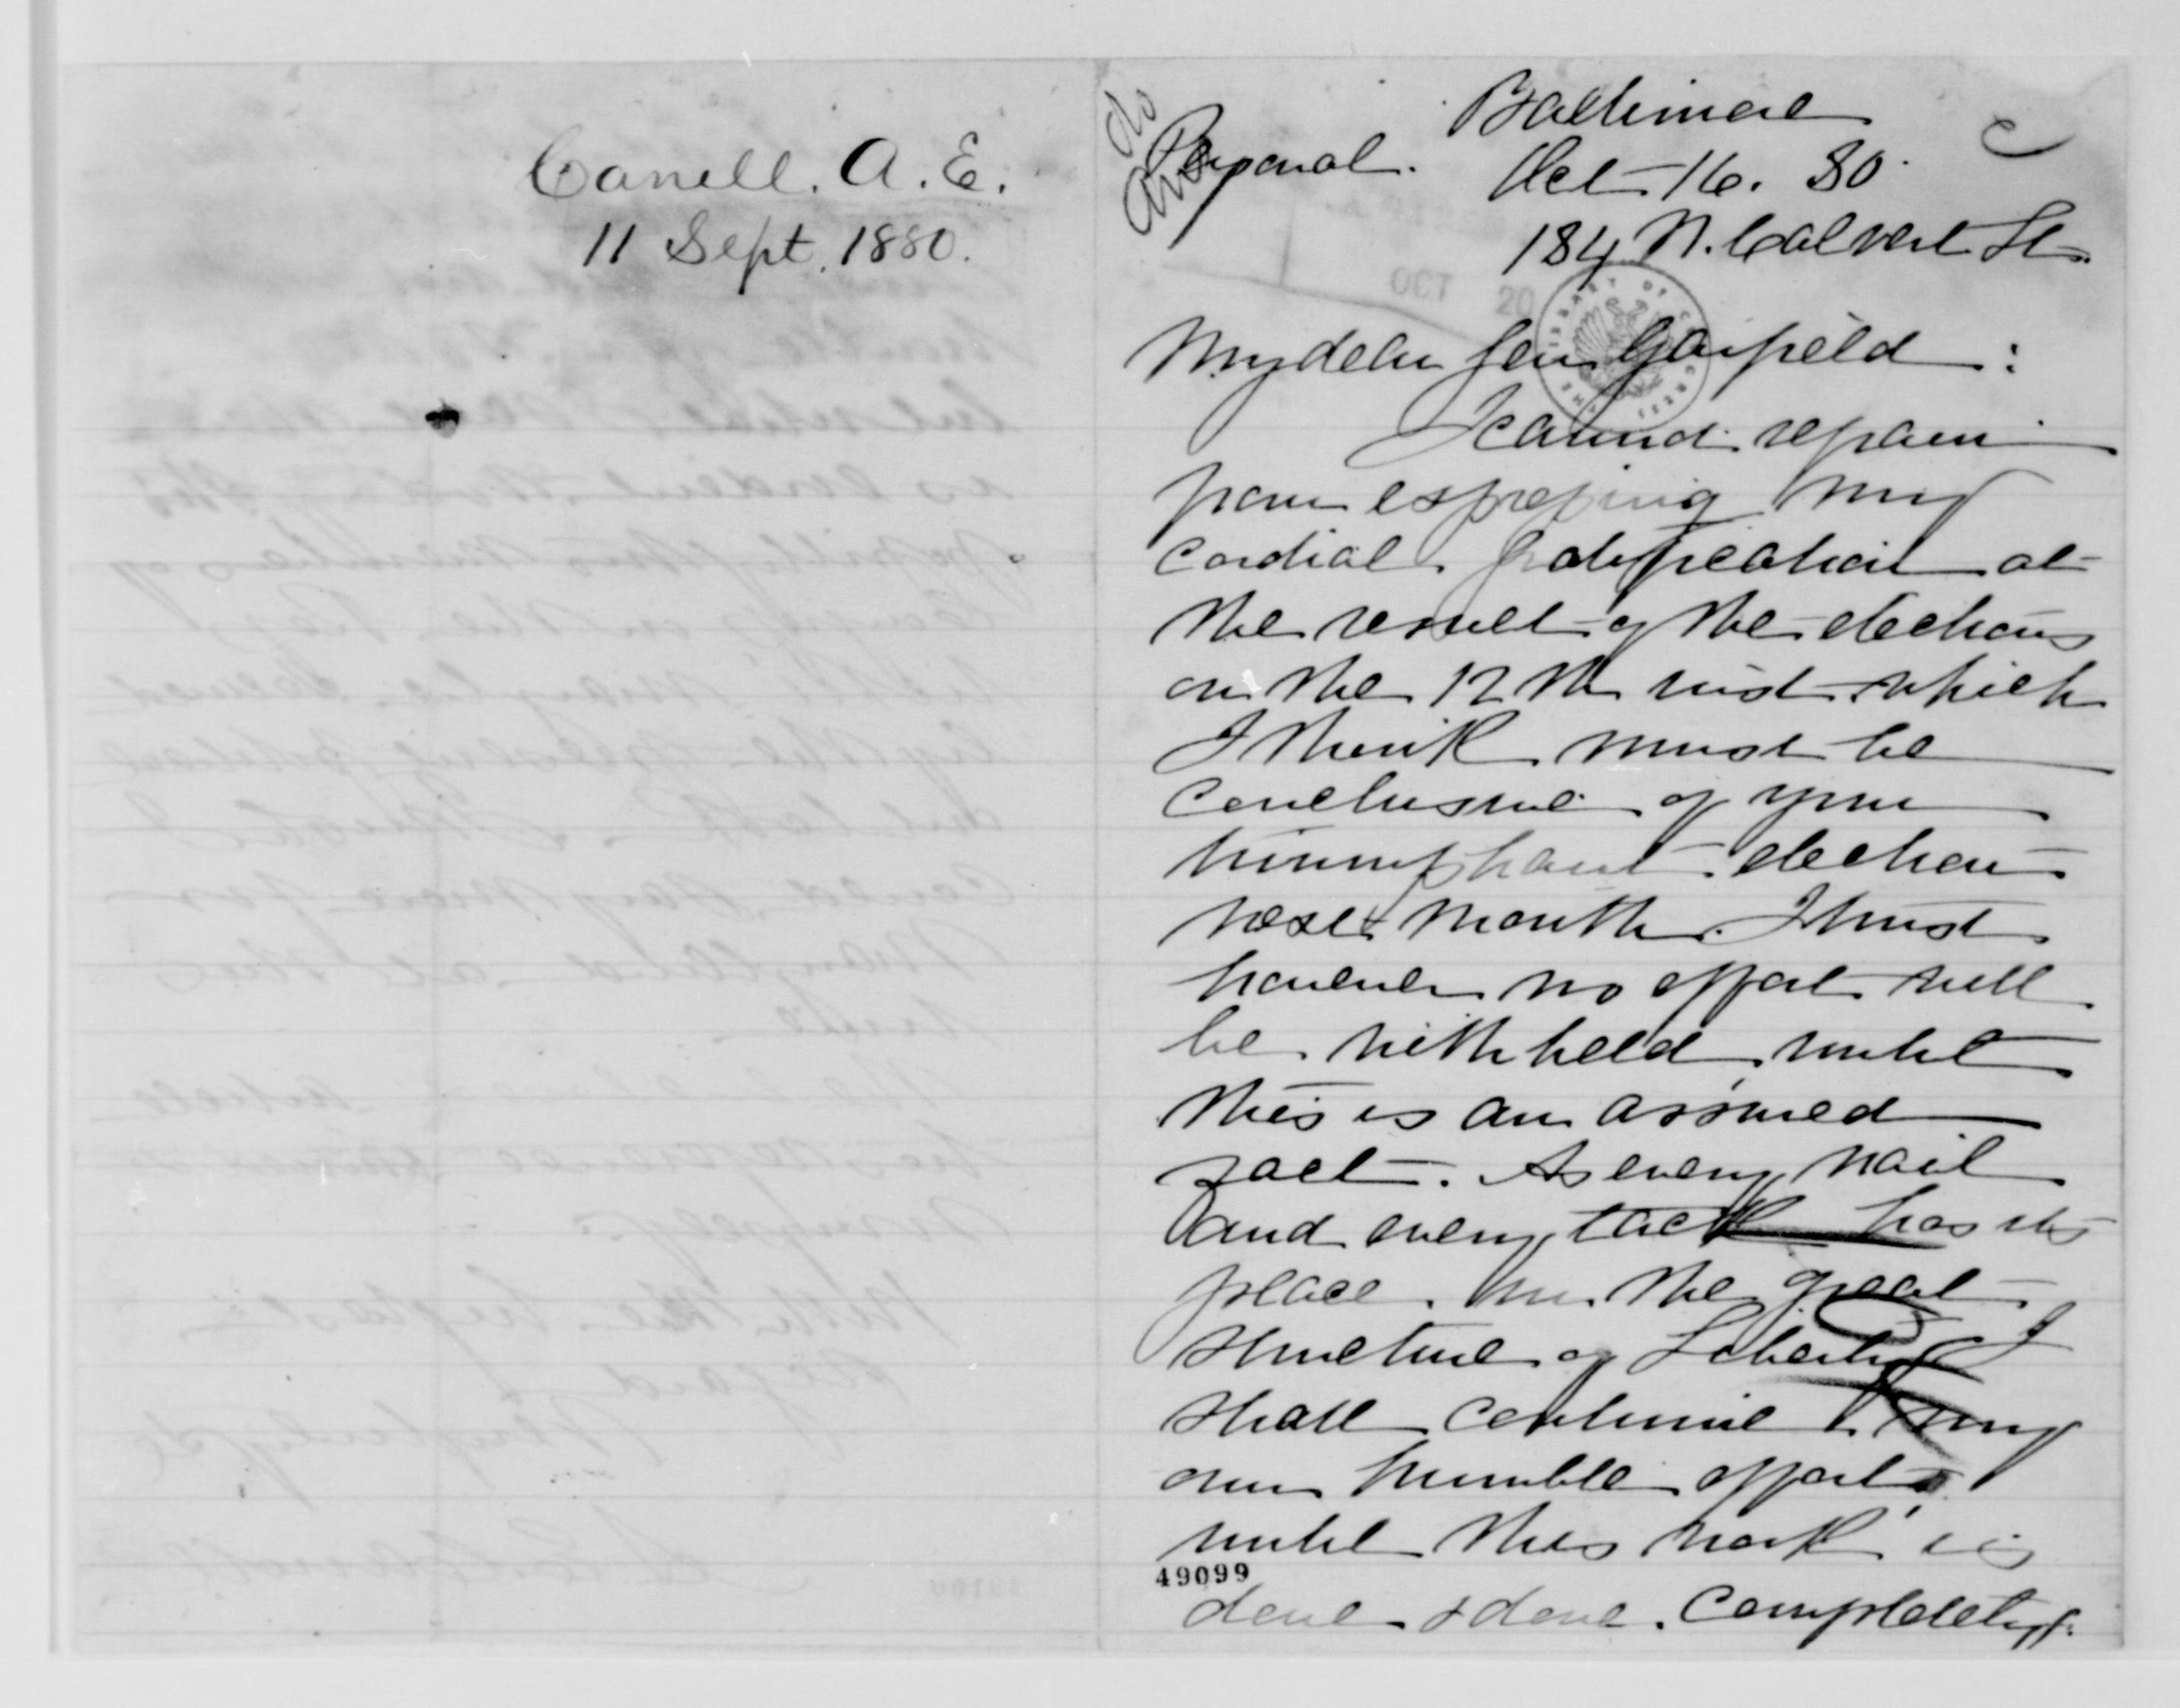 Canell. A. E.
11 Sept. 1880.
do
Ans
Personal.
Baltimore
Oct 16. 80.
184 N. Calvert St.
OCT 20
LIBRARY OF CONGRESS
My dear Gen Garfield :
I cannot refrain
from expressing my
cordial gratification at
the result of the elections
on the 12th inst which
I think must be
conclusive of your
triumphant election
next month. I trust
however no effort will
be withheld until
this is an assured
fact. As every nail
and every tack has its
place in the great
structure of Liberty I
shall continue my
own humble efforts
until this work is
49099
done & done completely.